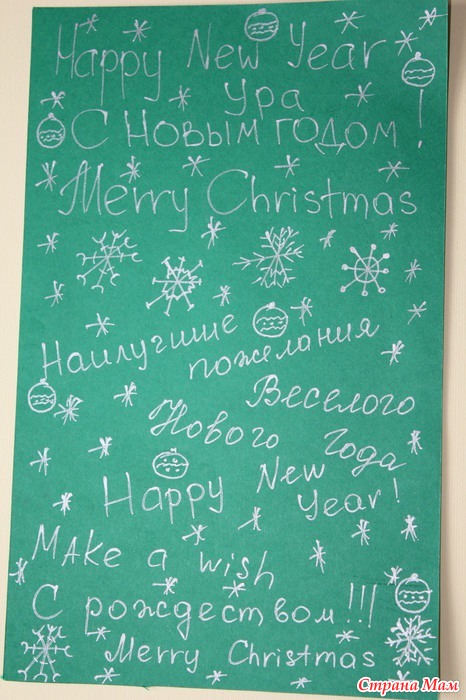 Happy New Year
Ура
С Новым годом!
Merry Christmas
Наилучшие
пожелания
Веселого
Нового Года
Happy New
Year!
Make a wish
С рождеством!!!
Merry Christmas
Страна Мам